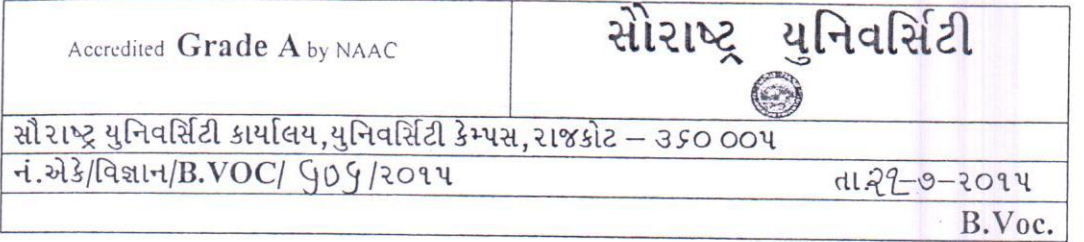 Accredited Grade A by NAAC
સૌરાષ્ટ્ર યુનિવર્સિટી
સૌરાષ્ટ્ર યુનિવર્સિટી કાર્યાલય,યુનિવર્સિટી કેમ્પસ,રાજકોટ – ૩૬૦ ૦૦૫
નં.એકે/વિજ્ઞાન/B.VOC/ /૨૦૧૫
તા.૨૧-૭-૨૦૧૫
B.Voc.